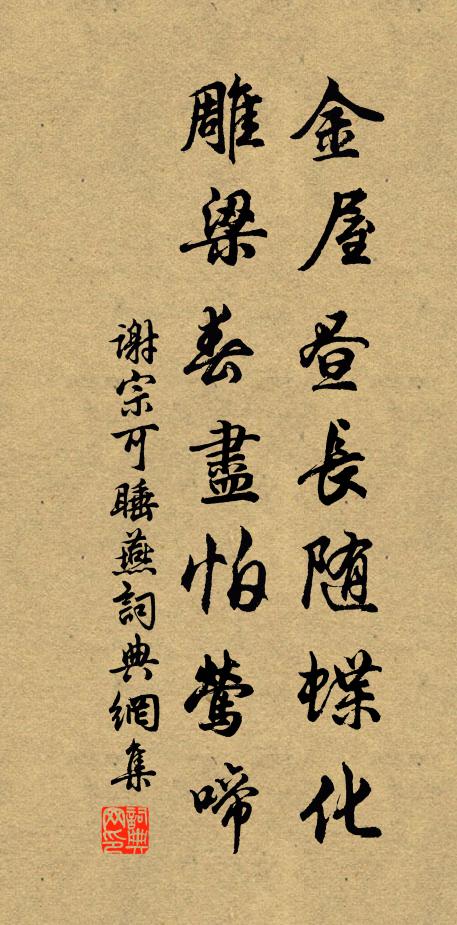 金屋昼長随蝶化
雕梁春盡怕鶯啼
谢宗可睡燕詞典網集
詞典网印